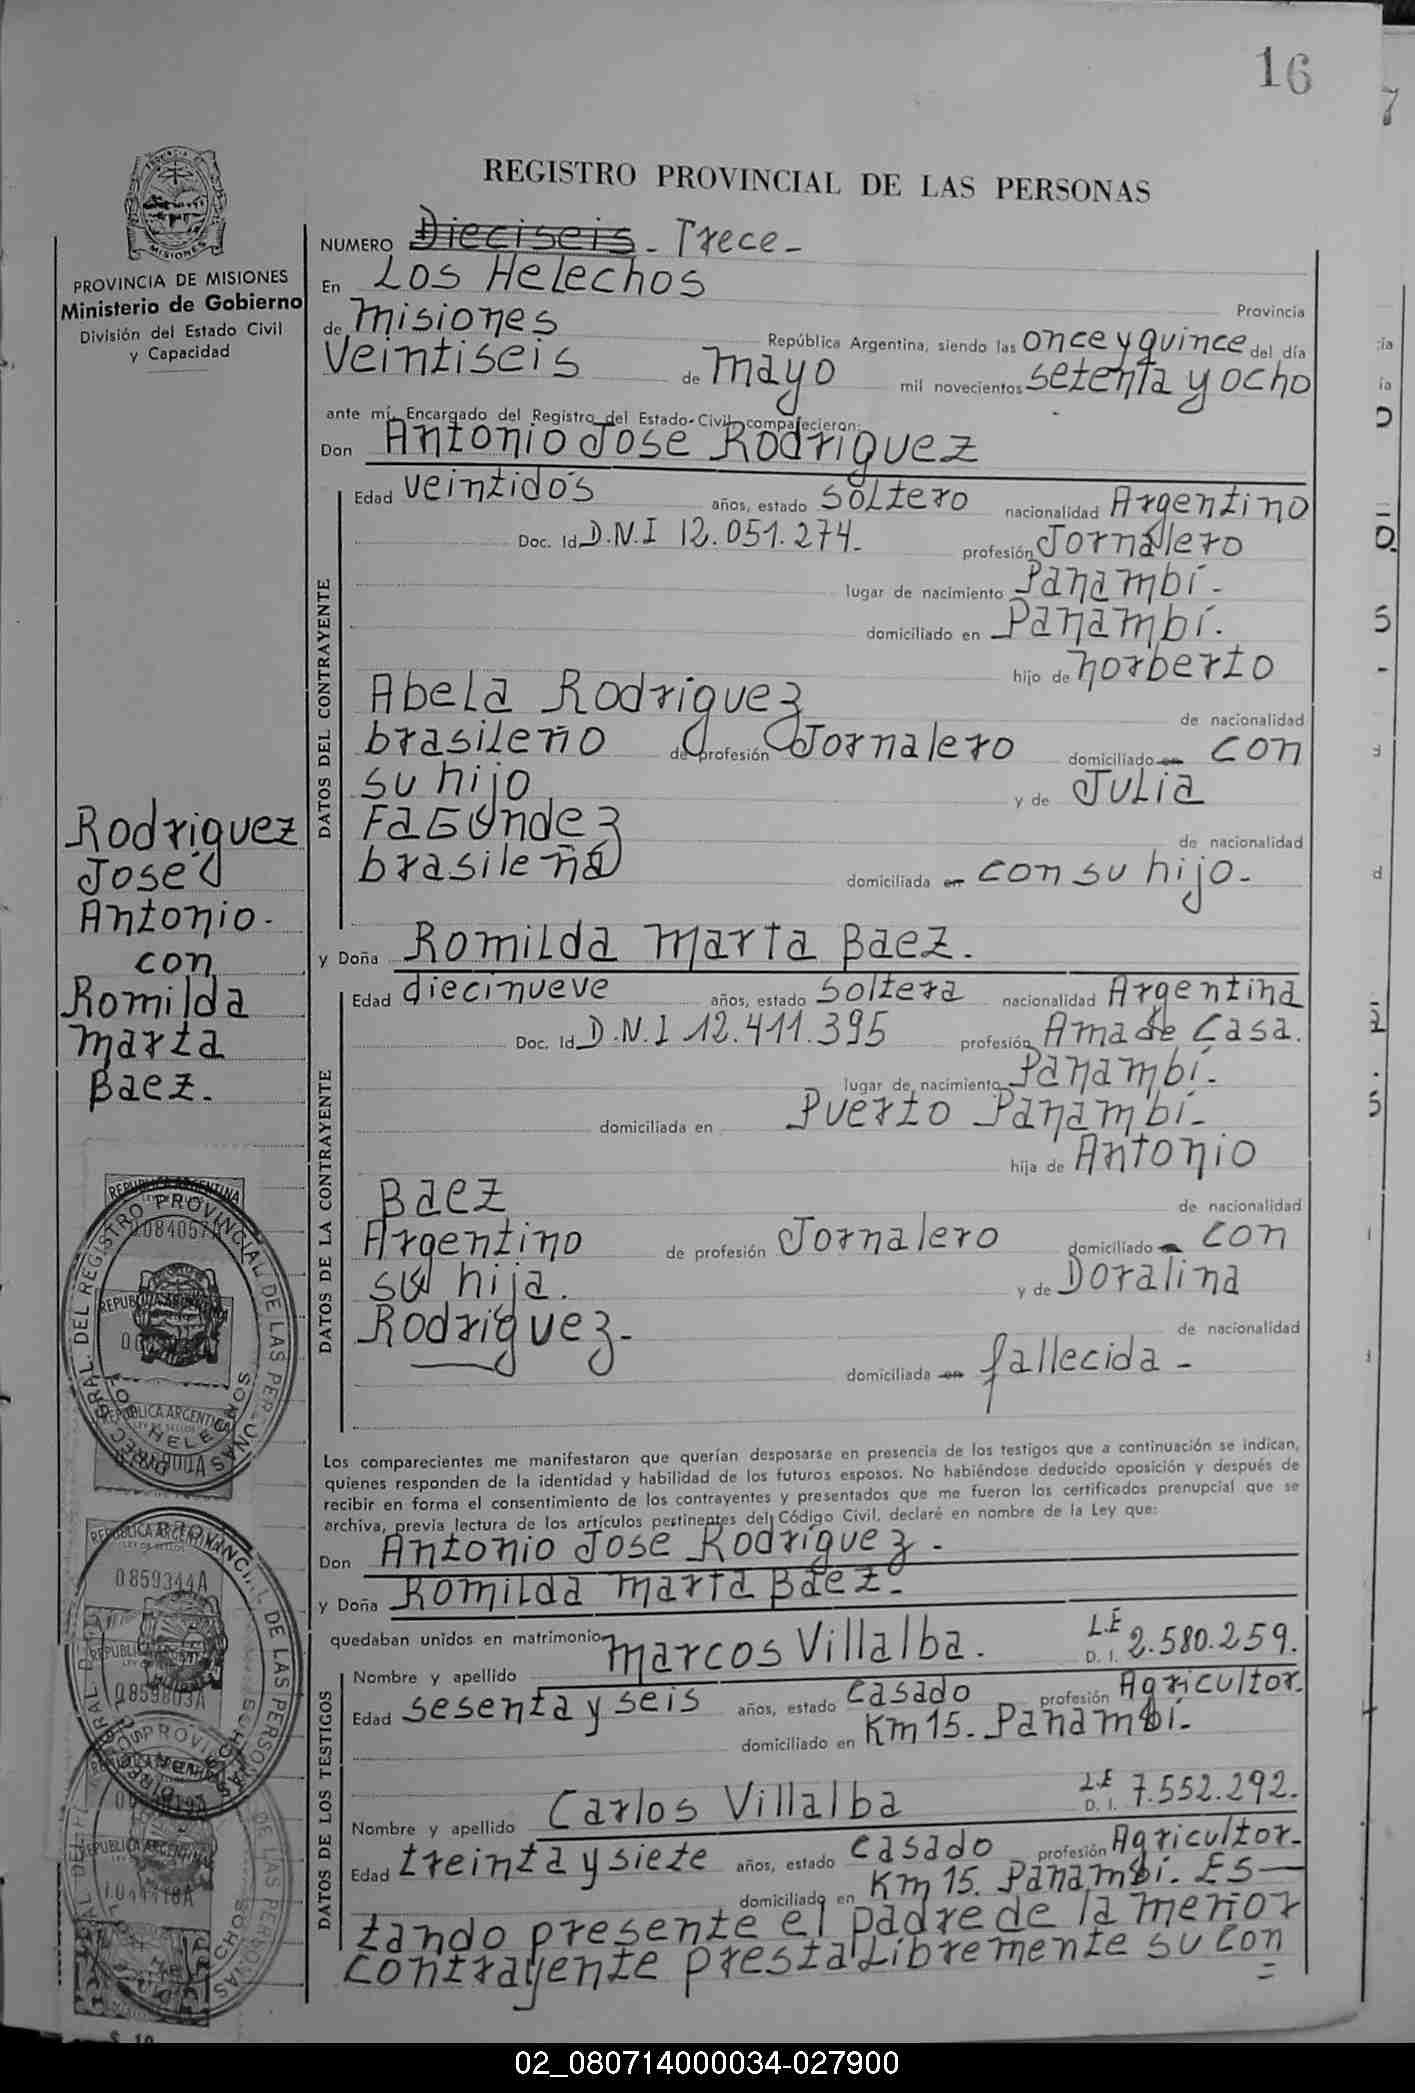 16
7
REGISTRO PROVINCIAL DE LAS PERSONAS
PROVINCIA DE MISIONES
Ministerio de Gobierno
División del Estado Civil
y Capacidad
NUMERO Dieciseis - Trece -
En Los Helechos
Provincia
de Misiones República Argentina, siendo las once y quince del día
Veintiseis de Mayo mil novecientos setenta y ocho
ante mí, Encargado del Registro del Estado Civil, comparecieron:
Don Antonio Jose Rodriguez
DATOS DEL CONTRAYENTE
Edad veintidós años, estado soltero nacionalidad Argentino
Doc. Id. D.N.I 12.051.274.- profesión Jornalero
lugar de nacimiento Panambí.-
domiciliado en Panambí.
hijo de Norberto
Abela Rodriguez de nacionalidad
brasileño de profesión Jornalero domiciliado en con
su hijo y de Julia
Fagundez de nacionalidad
brasileña domiciliada en - con su hijo.-
Rodriguez
José
Antonio.-
con
Romilda
Marta
Baez.
y Doña Romilda Marta Baez.
DATOS DE LA CONTRAYENTE
Edad diecinueve años, estado soltera nacionalidad Argentina
Doc. Id. D.N.I 12.411.395 profesión Ama de Casa.
lugar de nacimiento Panambí.
domiciliada en Puerto Panambí.-
hija de Antonio
Baez de nacionalidad
Argentino de profesión Jornalero domiciliado con
su hija. y de Doralina
Rodriguez.- de nacionalidad
domiciliada en fallecida -
Los comparecientes me manifestaron que querían desposarse en presencia de los testigos que a continuación se indican,
quienes responden de la identidad y habilidad de los futuros esposos. No habiéndose deducido oposición y después de
recibir en forma el consentimiento de los contrayentes y presentados que me fueron los certificados prenupcial que se
archiva, previa lectura de los artículos pertinentes del Código Civil, declaré en nombre de la Ley que:
Don Antonio Jose Rodríguez.-
y Doña Romilda Marta Baez.-
quedaban unidos en matrimonio
DATOS DE LOS TESTIGOS
Nombre y apellido Marcos Villalba. L.E D. I. 2.580.259.
Edad sesenta y seis años, estado casado profesión Agricultor.
domiciliado en Km 15. Panambí.-
Nombre y apellido Carlos Villalba L.E D. I. 7.552.292.
Edad treinta y siete años, estado casado profesión Agricultor.-
domiciliado en Km 15. Panambí. Es-
tando presente el padre de la menor
contrayente presta libremente su con
=
REPUBLICA ARGENTINA
DIREC. GRAL. DEL REGISTRO PROVINCIAL DE LAS PERSONAS
LOS HELECHOS
0859344A
0859803A
02_080714000034-027900